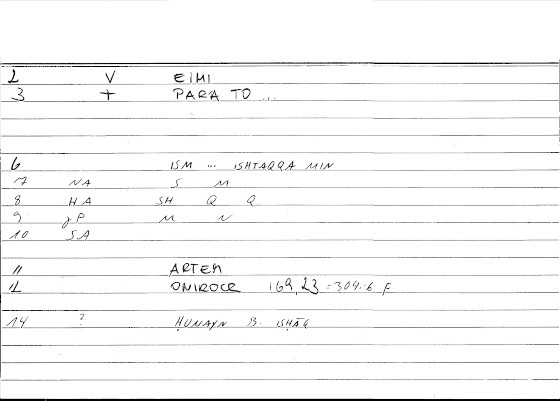 2 V EIMI
3 + PARA TO ...
6 ISM ... ISHTAQQA MIN
7 NA S M
8 HA SH Q Q
9 JP M N
10 SA
11 ARTEM
12 ONIROCR 169,23 = 304.6 F
14 ? ḤUNAYN B. ISḤĀQ